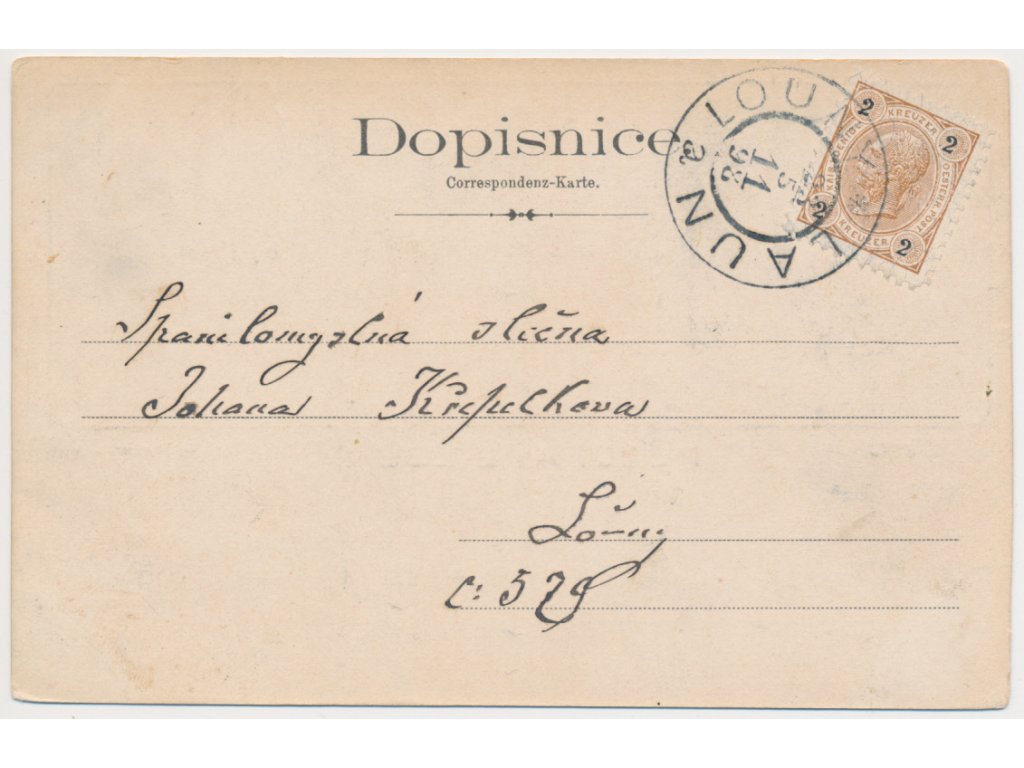 Dopisnice.
Correspondenz-Karte.
LAUN LOUN
26
11
2 KREUZER 2
OESTERR. POST
2 KREUZER 2
Spanilomyslná slečna
Johana Křepelkova
Louny
č: 579